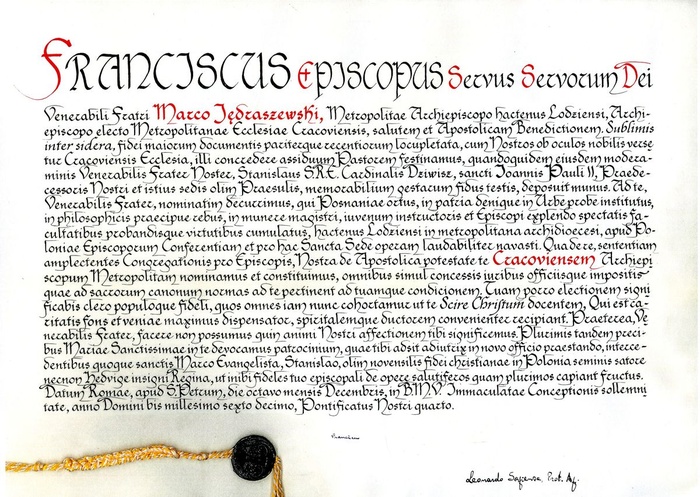 FRANCISCUS EPISCOPUS Servus Servorum Dei
Venerabili Fratri Marco Jędraszewski, Metropolitae Archiepiscopo hactenus Lodziensi, Archi-
episcopo electo Metropolitanae Ecclesiae Cracoviensis, salutem et Apostolicam Benedictionem. Sublimis
inter sidera, fidei maiorum documentis pariterque recentiorum locupletata, cum Nostros ob oculos nobilis verse
tur Cracoviensis Ecclesia, illi concredere assiduum Pastorem festinamus, quandoquidem eiusdem modera-
minis Venerabilis Frater Noster, Stanislaus S.R.E. Cardinalis Dziwisz, sancti Ioannis Pauli II, Praede-
cessoris Nostri et istius sedis olim Praesulis, memorabilium gestarum fidus testis, deposuit munus. Ad te,
Venerabilis Frater, nominatim decurrimus, qui Posnaniae ortus, in patria denique in Urbe probe institutus,
in philosophicis praecipue rebus, in munere magistri, iuvenum instructoris et Episcopi explendo spectatis fa-
cultatibus probandisque virtutibus cumulatus, hactenus Lodziensi in metropolitana archidioecesi, apud Po-
loniae Episcoporum Conferentiam et pro hac Sancta Sede operam laudabiliter navasti. Qua de re, sententiam
amplectentes Congregationis pro Episcopis, Nostra de Apostolica potestate te Cracoviensem Archiepi
scopum Metropolitam nominamus et constituimus, omnibus simul concessis iuribus officiisque impositis
quae ad sacrorum canonum normas ad te pertinent ad tuamque condicionem. Tuam porro electionem signi
ficabis clero populoque fideli, quos omnes iam nunc cohortamur ut te Scire Christum docentem, Qui est ca-
ritatis fons et veniae maximus dispensator, spiritalemque ductorem convenienter recipiant. Praeterea, Ve
nerabilis Frater, facere non possumus quin animi Nostri affectionem tibi significemus. Plurimis tandem preci-
bus Mariae Sanctissimae in te devocamus patrocinium, quae tibi adsit adiutrix in novo officio praestando, interce-
dentibus quoque sanctis Marco Evangelista, Stanislao, olim novensilis fidei christianae in Polonia seminis satore
necnon Hedvige insigni Regina, ut inibi fideles tuo episcopali de opere salutiferos quam plurimos capiant fructus.
Datum Romae, apud S. Petrum, die octavo mensis Decembris, in B.M.V. Immaculatae Conceptionis sollemni
tate, anno Domini bis millesimo sexto decimo, Pontificatus Nostri quarto.
Leonardo Sapienza, Prot. Ap.